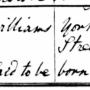 illiams York
Stre
aid to be born